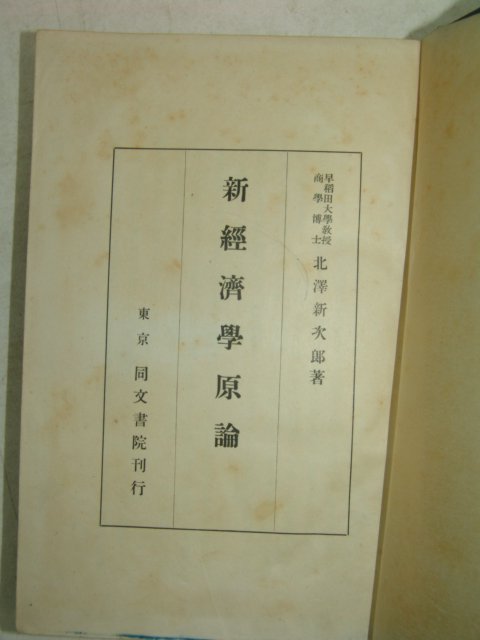 早稻田大學敎授
商學博士
北澤新次郎著
新經濟學原論
東京 同文書院刊行